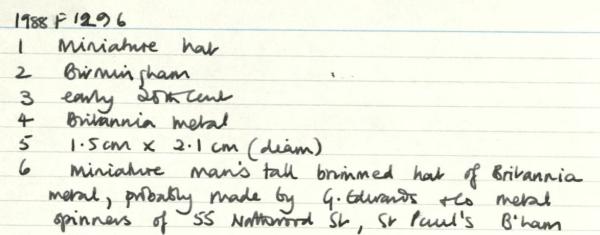 1988 F 1296
1 Miniature hat
2 Birmingham
3 early 20th Cent
4 Britannia metal
5 1.5cm x 2.1 cm (diam)
6 Miniature man's tall brimmed hat of Britannia
metal, probably made by G. Edwards & Co metal
spinners of 55 Northwood St, St Paul's B'ham